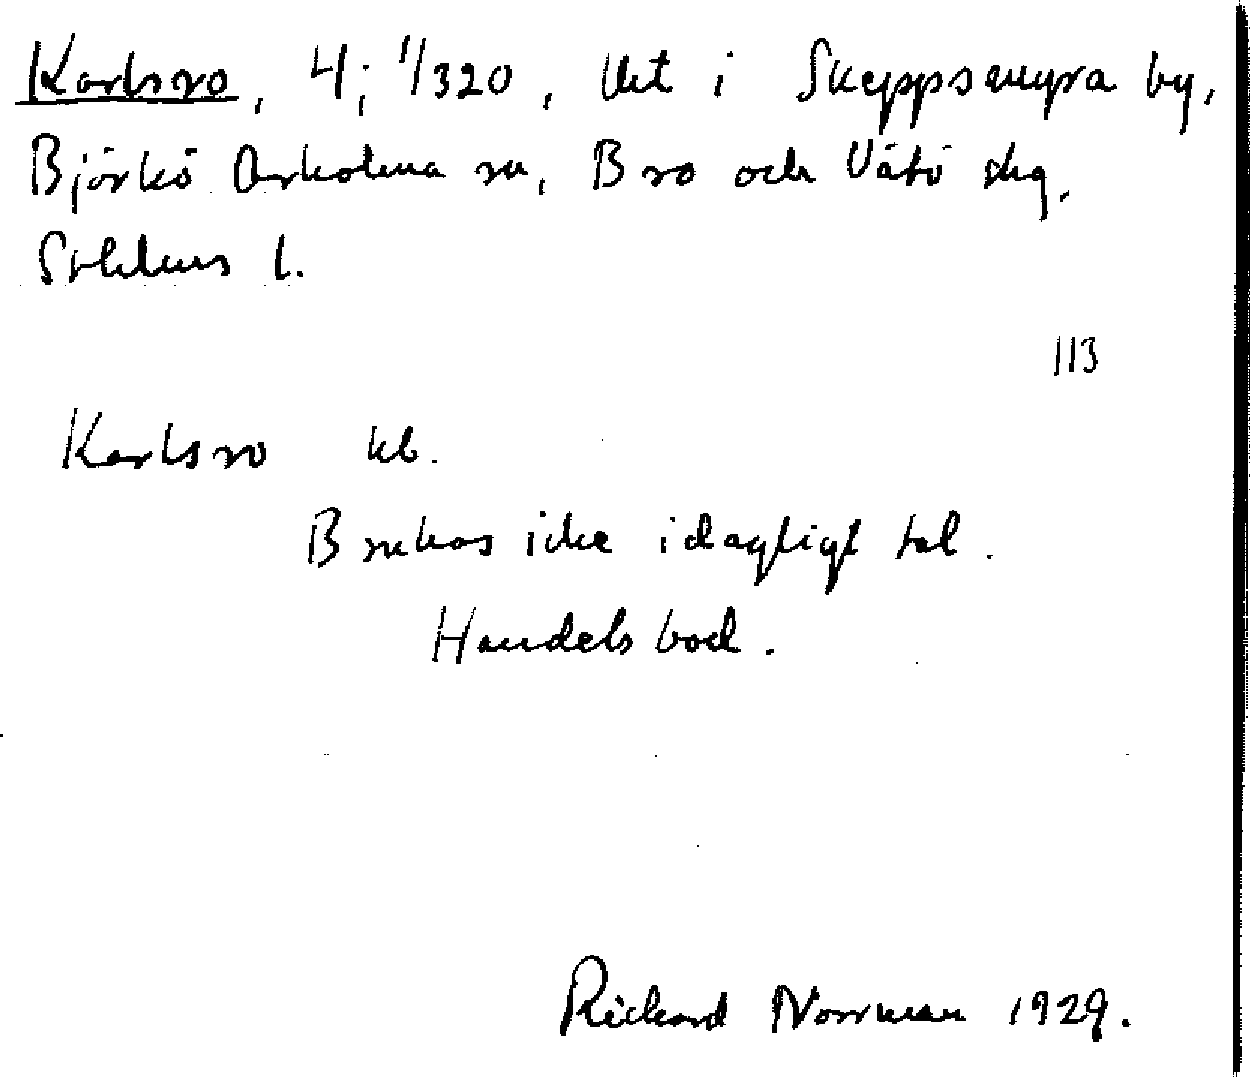 Karlsro, 4; 1/320, lht i Skeppsmyra by,
Björkö Arholma sn, Bro och Vätö skg,
Sthlms l.
113
Karlsro kb.
Brukas icke i dagligt tal.
Handelsbod.
Richard Norrman 1929.